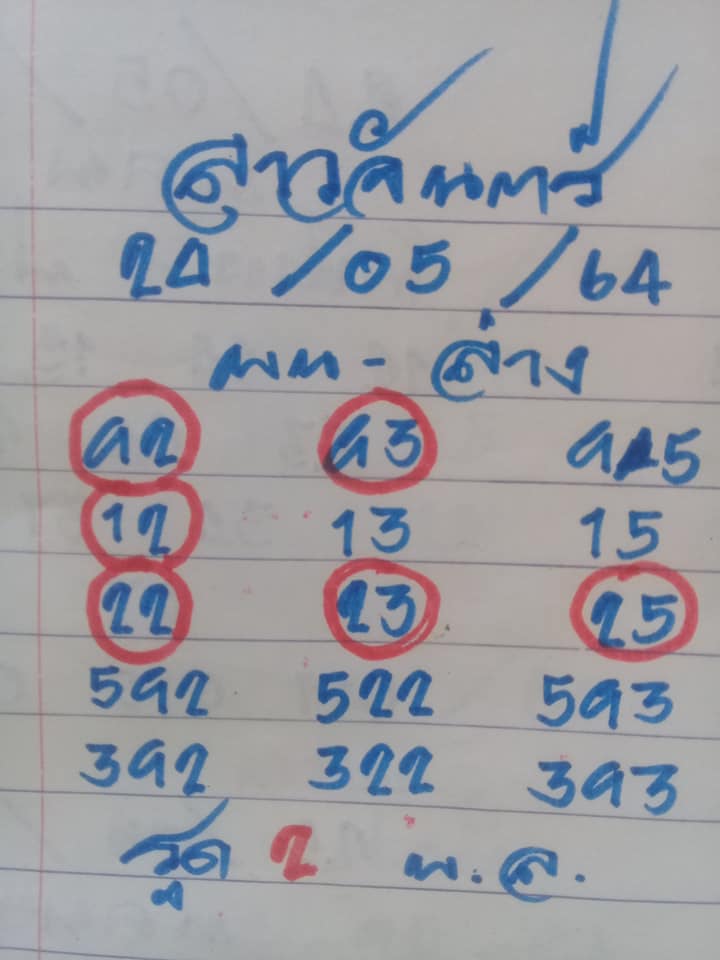 สาวจันทร์
24 / 05 / 64
บน - ล่าง
92 93 95
12 13 15
22 23 25
592 522 593
392 322 393
รูด 2 บ.ล.